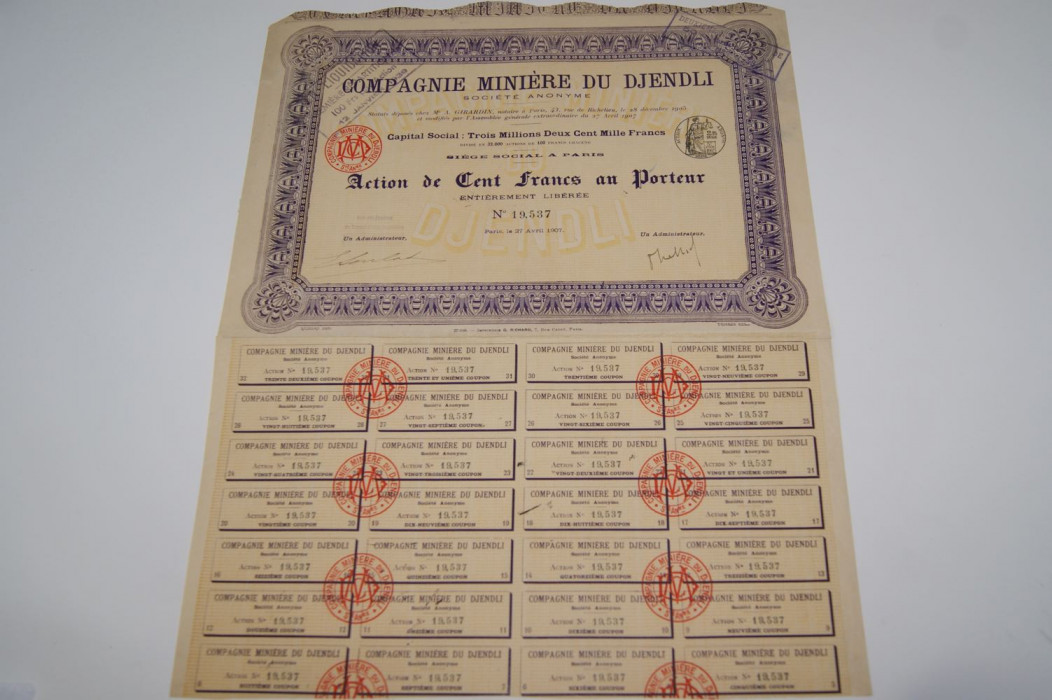 COMPAGNIE MINIÈRE DU DJENDLI
SOCIÉTÉ ANONYME
Statuts déposés chez Mᵉ A. GIRARDIN, notaire à Paris, 43, rue de Richelieu, le 28 décembre 1905
et modifiés par l'Assemblée générale extraordinaire du 27 Avril 1907
Capital Social : Trois Millions Deux Cent Mille Francs
DIVISÉ EN 32.000 ACTIONS DE 100 FRANCS CHACUNE
SIÈGE SOCIAL A PARIS
Action de Cent Francs au Porteur
ENTIÈREMENT LIBÉRÉE
Nº 19,537
Paris, le 27 Avril 1907.
Un Administrateur,
Un Administrateur,
DJENDLI
COMPAGNIE MINIÈRE DU DJENDLI
Société Anonyme
ACTION Nº 19,537
32 TRENTE-DEUXIÈME COUPON
COMPAGNIE MINIÈRE DU DJENDLI
Société Anonyme
ACTION Nº 19,537
TRENTE ET UNIÈME COUPON 31
COMPAGNIE MINIÈRE DU DJENDLI
Société Anonyme
ACTION Nº 19,537
30 TRENTIÈME COUPON
COMPAGNIE MINIÈRE DU DJENDLI
Société Anonyme
ACTION Nº 19,537
VINGT-NEUVIÈME COUPON 29
COMPAGNIE MINIÈRE DU DJENDLI
Société Anonyme
ACTION Nº 19,537
28 VINGT-HUITIÈME COUPON 28
COMPAGNIE MINIÈRE DU DJENDLI
Société Anonyme
ACTION Nº 19,537
27 VINGT-SEPTIÈME COUPON 27
COMPAGNIE MINIÈRE DU DJENDLI
Société Anonyme
ACTION Nº 19,537
26 VINGT-SIXIÈME COUPON 26
COMPAGNIE MINIÈRE DU DJENDLI
Société Anonyme
ACTION Nº 19,537
25 VINGT-CINQUIÈME COUPON 25
COMPAGNIE MINIÈRE DU DJENDLI
Société Anonyme
ACTION Nº 19,537
24 VINGT-QUATRIÈME COUPON
COMPAGNIE MINIÈRE DU DJENDLI
Société Anonyme
ACTION Nº 19,537
VINGT-TROISIÈME COUPON 23
COMPAGNIE MINIÈRE DU DJENDLI
Société Anonyme
ACTION Nº 19,537
22 VINGT-DEUXIÈME COUPON
COMPAGNIE MINIÈRE DU DJENDLI
Société Anonyme
ACTION Nº 19,537
VINGT ET UNIÈME COUPON 21
COMPAGNIE MINIÈRE DU DJENDLI
Société Anonyme
ACTION Nº 19,537
20 VINGTIÈME COUPON 20
COMPAGNIE MINIÈRE DU DJENDLI
Société Anonyme
ACTION Nº 19,537
19 DIX-NEUVIÈME COUPON 19
COMPAGNIE MINIÈRE DU DJENDLI
Société Anonyme
ACTION Nº 19,537
18 DIX-HUITIÈME COUPON 18
COMPAGNIE MINIÈRE DU DJENDLI
Société Anonyme
ACTION Nº 19,537
17 DIX-SEPTIÈME COUPON 17
COMPAGNIE MINIÈRE DU DJENDLI
Société Anonyme
ACTION Nº 19,537
16 SEIZIÈME COUPON
COMPAGNIE MINIÈRE DU DJENDLI
Société Anonyme
ACTION Nº 19,537
QUINZIÈME COUPON 15
COMPAGNIE MINIÈRE DU DJENDLI
Société Anonyme
ACTION Nº 19,537
14 QUATORZIÈME COUPON
COMPAGNIE MINIÈRE DU DJENDLI
Société Anonyme
ACTION Nº 19,537
TREIZIÈME COUPON 13
COMPAGNIE MINIÈRE DU DJENDLI
Société Anonyme
ACTION Nº 19,537
12 DOUZIÈME COUPON 12
COMPAGNIE MINIÈRE DU DJENDLI
Société Anonyme
ACTION Nº 19,537
11 ONZIÈME COUPON 11
COMPAGNIE MINIÈRE DU DJENDLI
Société Anonyme
ACTION Nº 19,537
10 DIXIÈME COUPON 10
COMPAGNIE MINIÈRE DU DJENDLI
Société Anonyme
ACTION Nº 19,537
9 NEUVIÈME COUPON 9
COMPAGNIE MINIÈRE DU DJENDLI
Société Anonyme
ACTION Nº 19,537
8 HUITIÈME COUPON
COMPAGNIE MINIÈRE DU DJENDLI
Société Anonyme
ACTION Nº 19,537
SEPTIÈME COUPON 7
COMPAGNIE MINIÈRE DU DJENDLI
Société Anonyme
ACTION Nº 19,537
6 SIXIÈME COUPON
COMPAGNIE MINIÈRE DU DJENDLI
Société Anonyme
ACTION Nº 19,537
CINQUIÈME COUPON 5